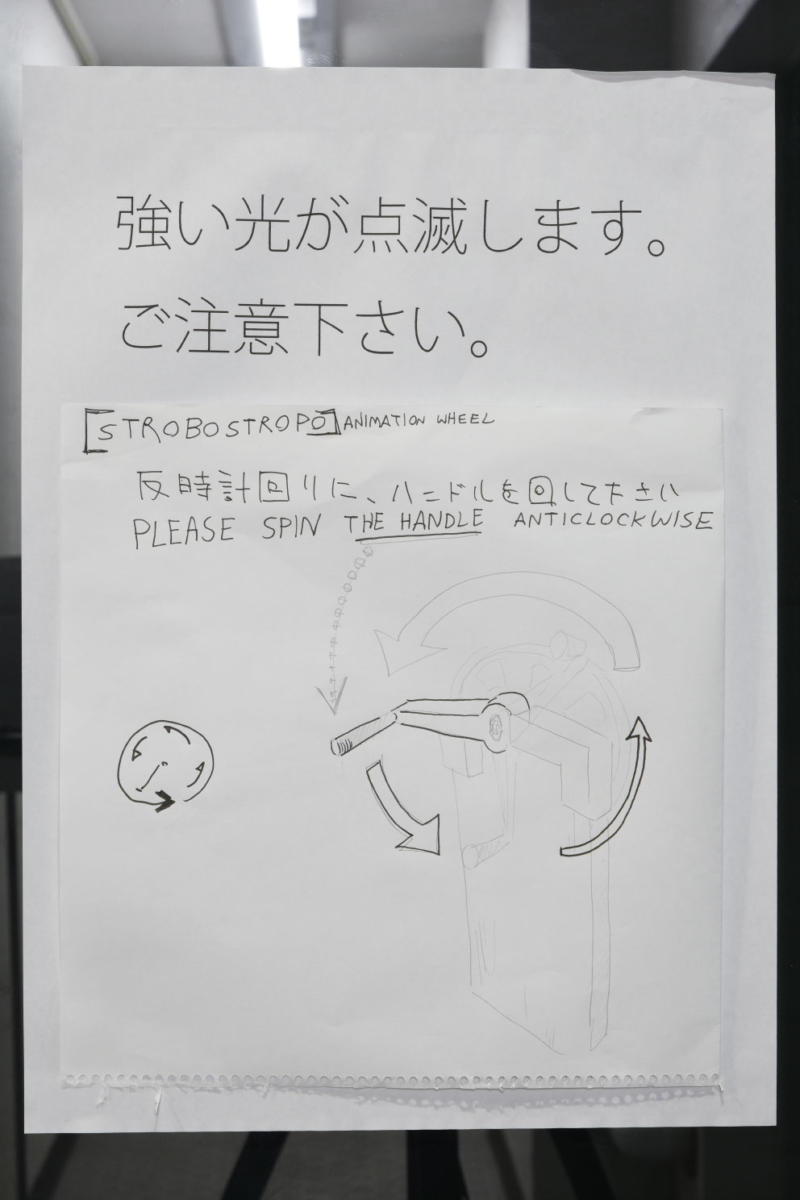 強い光が点滅します。
ご注意下さい。
[STROBOSTROPO] ANIMATION WHEEL
反時計回りに、ハンドルを回して下さい
PLEASE SPIN THE HANDLE ANTICLOCKWISE